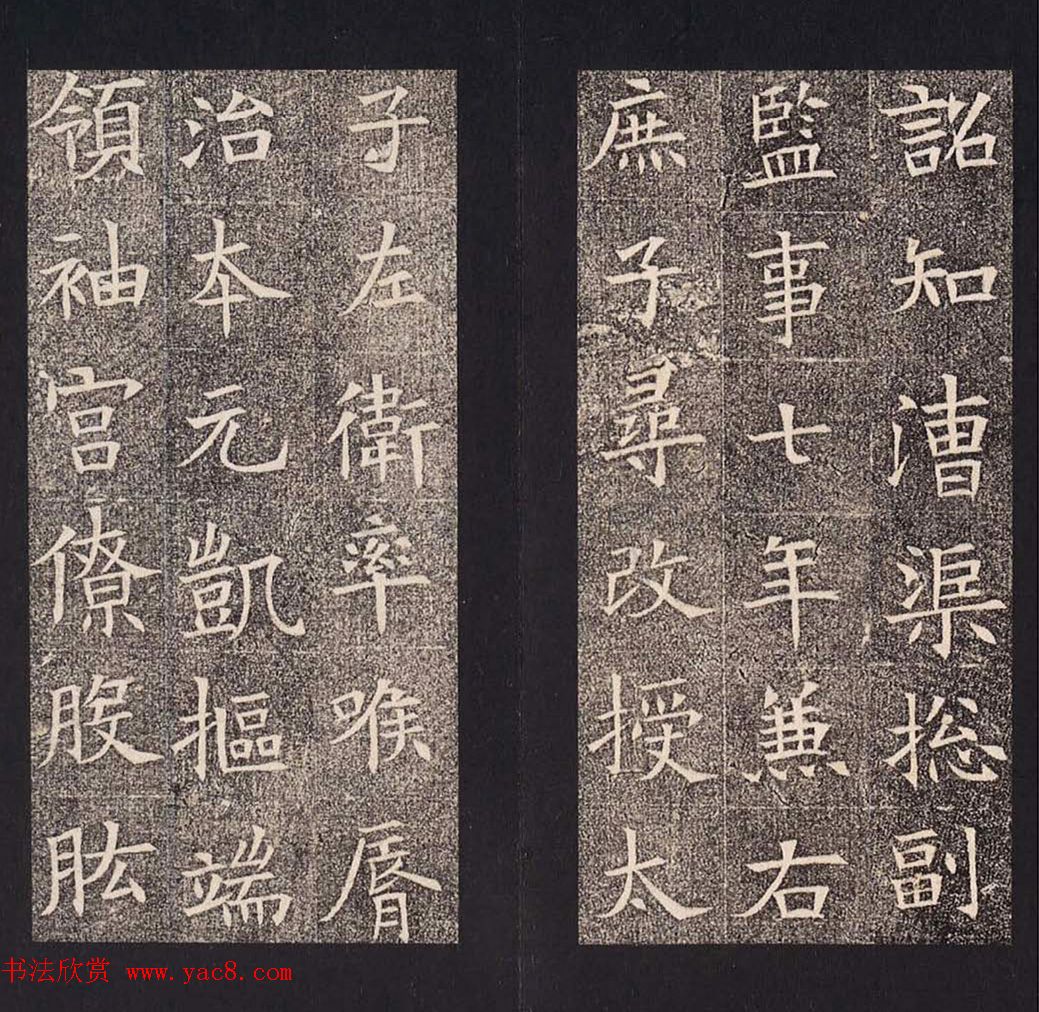 詔知漕渠揔副
監事七年兼右
庶子尋改授太
子左衛率喉脣
治本元凱摳端
領袖宮僚股肱
书法欣赏 www.yac8.com